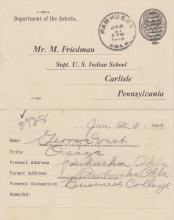 Department of the Interior.
PAWHUSKA
JAN
OKLA.
Mr. M. Friedman
Supt. U. S. Indian School
Carlisle
Pennsylvania
Jan. 20, 1909
Name George West
Tribe Osage
Present Address Pawhuska Okla
Former Address Pawhuska Okla
Present Occupation Business College
Remarks: